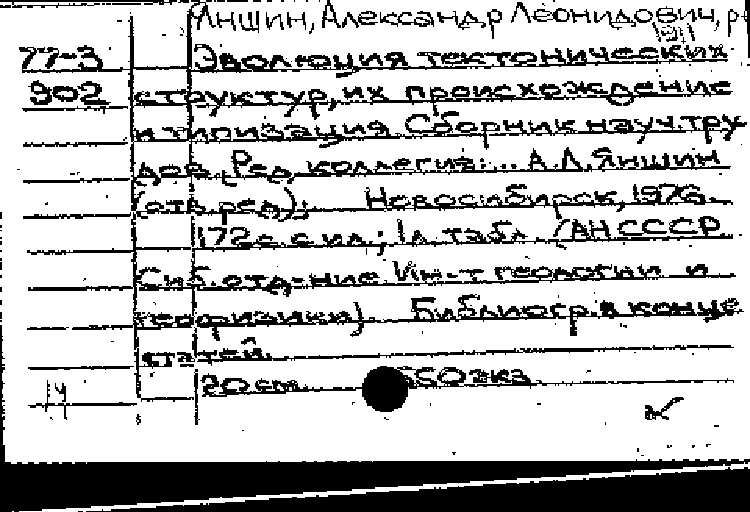 Яншин, Александр Леонидович, р
1911
77-3 Эволюция тектонических
902 структур, их происхождение
и типизация. Сборник науч. тру
дов. [Ред. коллегия: ... А.Л. Яншин
(отв. ред.)]. Новосибирск, 1976.
172 с. с ил.; 1 л. табл. (АН СССР
Сиб. отд-ние. Ин-т геологии и
геофизики). Библиогр. в конце
статей.
20 см. 550 экз.
14